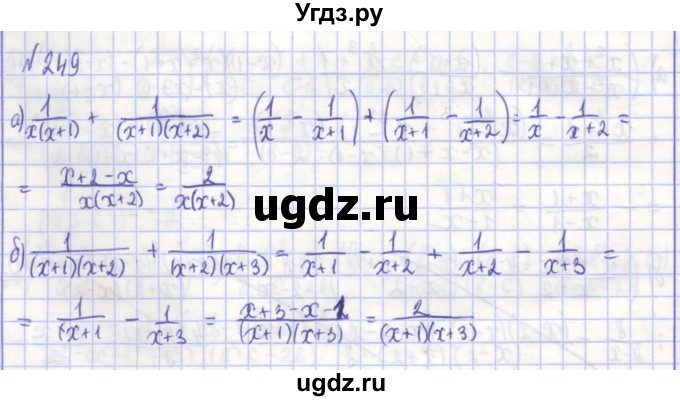 Угдз.ру
№ 249
а) 1/(x(x+1)) + 1/((x+1)(x+2)) = (1/x - 1/(x+1)) + (1/(x+1) - 1/(x+2)) = 1/x - 1/(x+2) =
= (x+2-x)/(x(x+2)) = 2/(x(x+2))
ugdz.ru
б) 1/((x+1)(x+2)) + 1/((x+2)(x+3)) = 1/(x+1) - 1/(x+2) + 1/(x+2) - 1/(x+3) =
= 1/(x+1 - 1/(x+3) = (x+3-x-1)/((x+1)(x+3)) = 2/((x+1)(x+3))
ugdz.ru